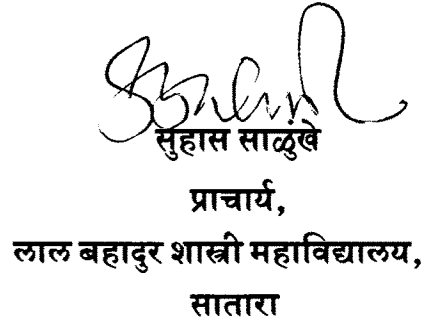 सुहास साळुंखे
प्राचार्य,
लाल बहादुर शास्त्री महाविद्यालय,
सातारा